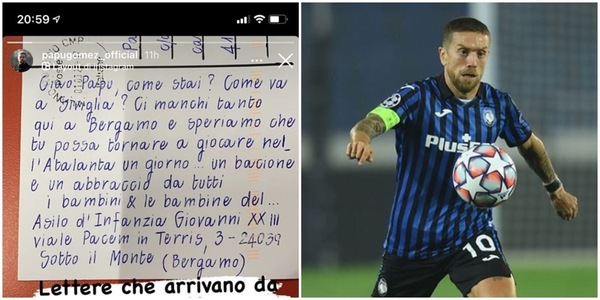 20:59
papugomez_official 11h
Layout di Instagram
Ciao Papu, come stai? Come va
a Siviglia? Ci manchi tanto
qui a Bergamo e speriamo che
tu possa tornare a giocare nel
l'Atalanta un giorno... un bacione
e un abbraccio da tutti
i bambini & le bambine del...
Asilo d'Infanzia Giovanni XXIII
viale Pacem in Terris, 3 - 24039
Sotto il Monte (Bergamo)
Lettere che arrivano da
Plus
10